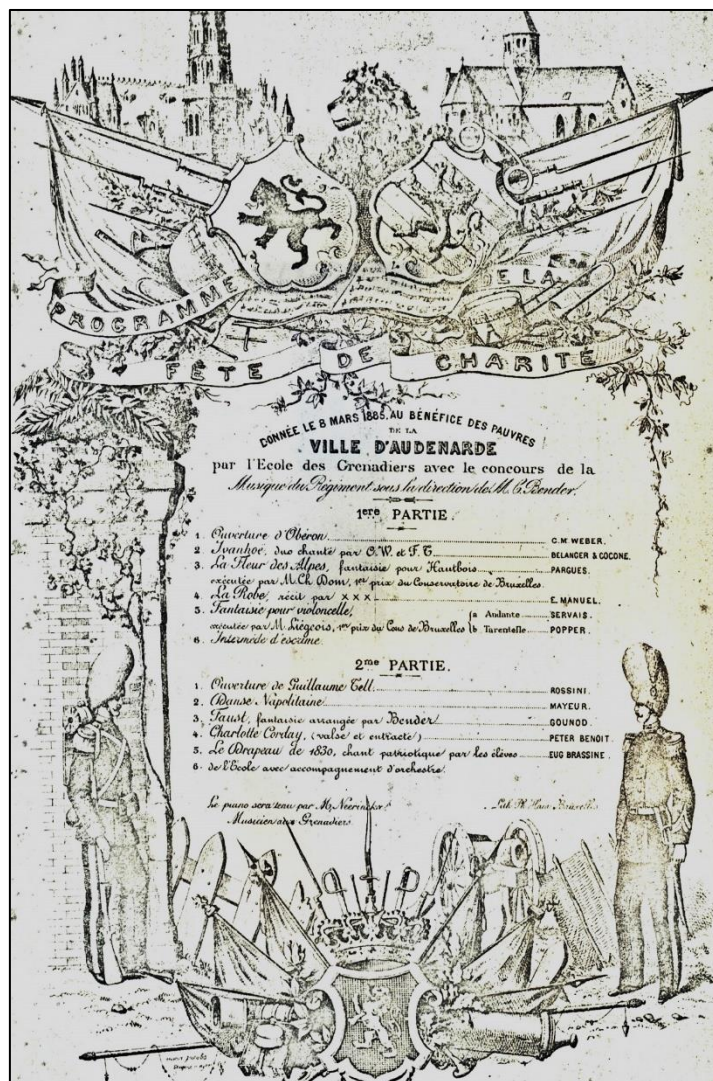 PROGRAMME
E LA
FÊTE DE CHARITÉ
DONNÉE LE 8 MARS 1885. AU BÉNÉFICE DES PAUVRES
DE LA
VILLE D'AUDENARDE
par l'Ecole des Grenadiers avec le concours de la
Musique du Régiment sous la direction de M. C. Bender.
1ere PARTIE.
1. Ouverture d'Obéron C. M. WEBER.
2. Ivanhoé, duo chanté par O. W. et F. T. BELANGER & COCONE.
3. La Fleur des Alpes, fantaisie pour Hautbois PARGUES.
exécutée par M. Ch. Dom, 1er prix du Conservatoire de Bruxelles.
4. La Robe, récit par × × × E. MANUEL.
5. Fantaisie pour violoncelle, { a Andante SERVAIS.
exécutée par M. Liégeois, 1er prix du Cons de Bruxelles { b Tarentelle POPPER.
6. Intermède d'escrime.
2me PARTIE.
1. Ouverture de Guillaume Tell ROSSINI.
2. Danse Napolitaine MAYEUR.
3. Faust, fantaisie arrangée par Bender GOUNOD.
4. Charlotte Corday, (valse et entracte) PETER BENOIT.
5. Le Drapeau de 1830, chant patriotique par les élèves EUG BRASSINE.
6. de l'Ecole avec accompagnement d'orchestre.
Le piano sera tenu par Mr Neerinckx
Musicien aux Grenadiers.
Lith. Bruxelles